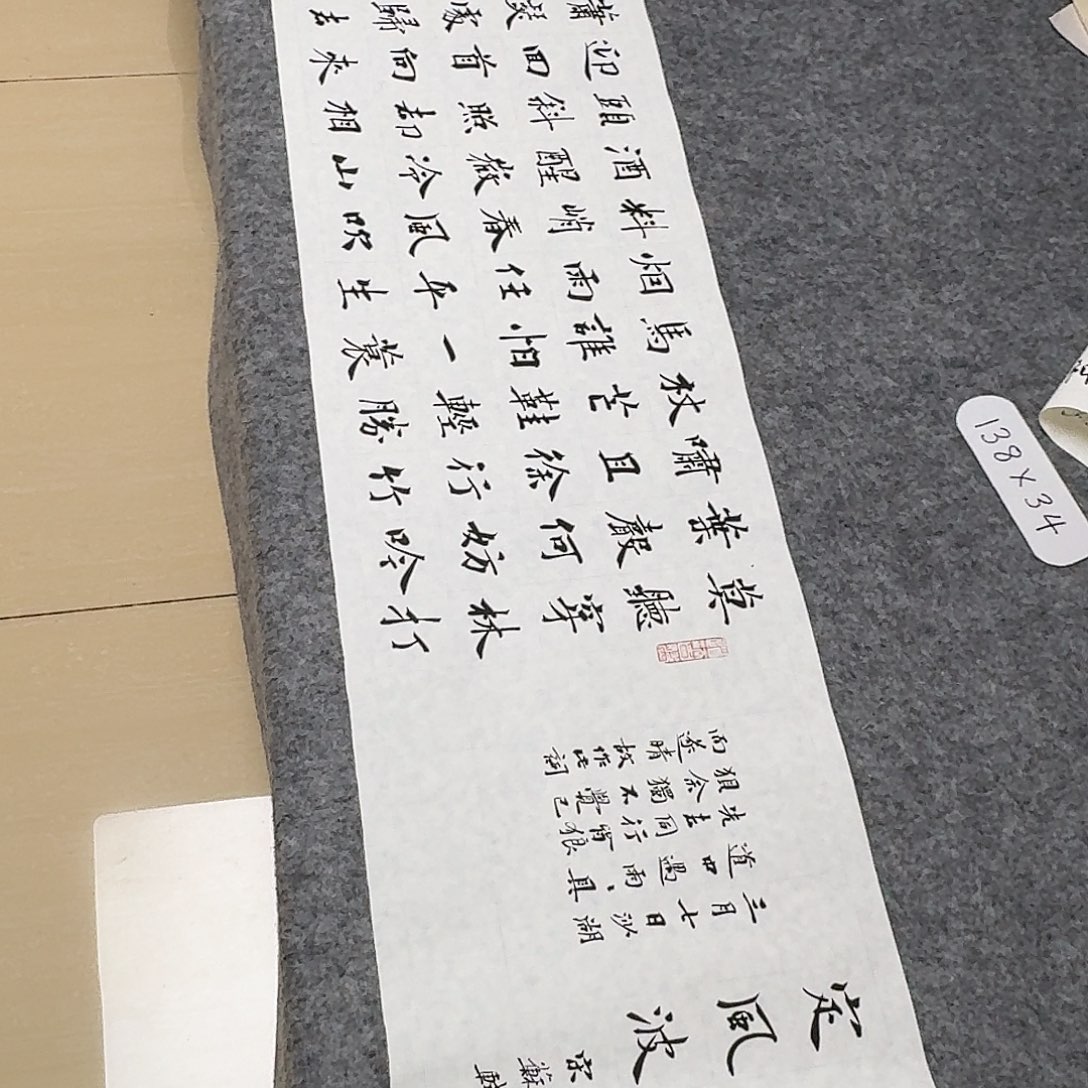 定風波
宋 蘇軾
三月七日沙湖
道中遇雨、具
先去同行皆狼
狽余獨不覺已
而遂晴故作此詞
莫聽穿林打
葉聲何妨吟
嘯且徐行竹
杖芒鞋輕勝
馬誰怕一蓑
烟雨任平生
料峭春風吹
酒醒微冷山
頭斜照却相
迎回首向來
蕭瑟處歸去
138×34